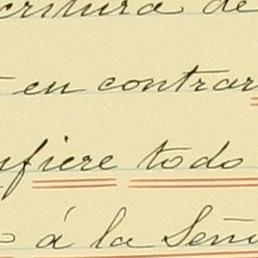 critura de
en contrar
fiere todo
á la Señ